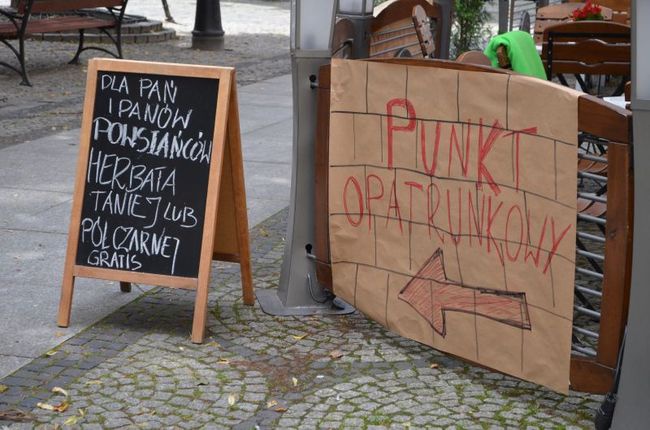 DLA PAŃ
I PANÓW
POWSTAŃCÓW
HERBATA
TANIEJ LUB
PÓŁ CZARNEJ
GRATIS
PUNKT
OPATRUNKOWY